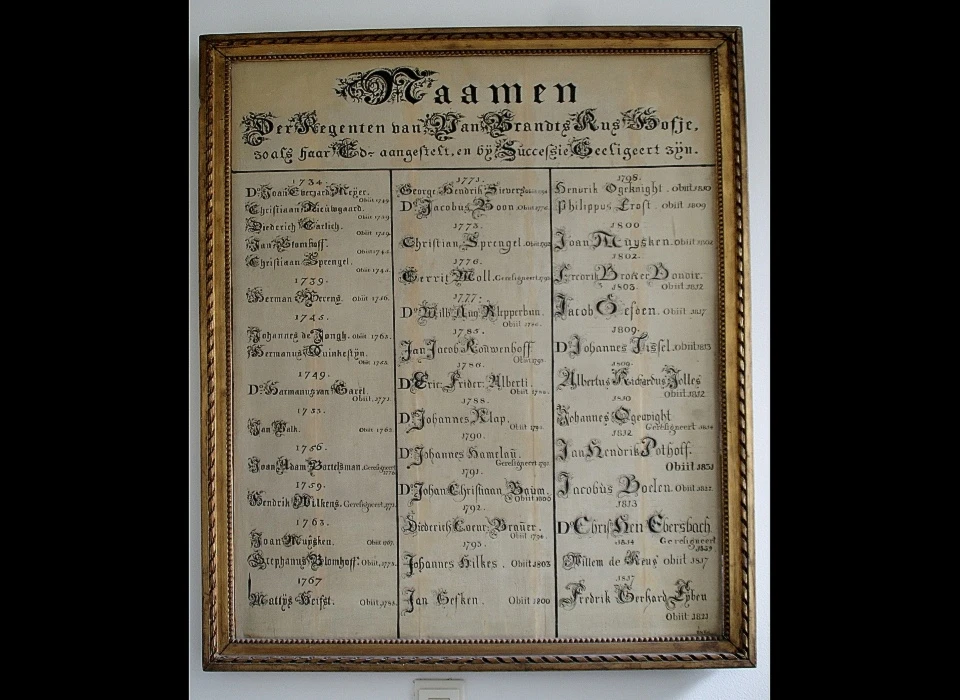 Naamen
Der Regenten van Van Brandts Rus Hofje,
zo als haar Ed- aangestelt, en bÿ Successie Geeligeert zÿn.
1734.
Dº Joan Everhard Meÿer.
Obiit 1749
Christiaan Nieuwgaard.
Obiit 1739
Diederich Carlich.
Obiit
Jan Blomhoff.
Obiit 1745.
Christiaan Sprengel.
Obiit 1745.
1739.
Herman Obiit 1756.
1745.
Johannes de Jongh. Obiit 1763.
Hermanus Quinkestÿn.
Obiit
1749.
Dº Harmanus van Garel.
Obiit, 1771.
1753.
Jan Valk. Obiit 1763
1756.
Joan Adam Bartelsman. Geresigneert
1759.
Hendrik Wilkens. Geresigneert, 1771.
1763.
Joan Muÿsken. Obiit 1767.
Stephanus Blomhoff. Obiit, 1773.
1767
Mattÿs Obiit, 1785.
1771.
George Hendrik Sievers
Dº Jacobus Boon Obiit
1773.
Christian Sprengel. Obiit
1776.
Gerrit Moll. Geresigneert
1777.
Dº Wilh. Aug. Klepperbun.
Obiit
1785.
Jan Jacob Kouwenhoff
Obiit
1786.
Dº Eric: Frider: Alberti.
Obiit
1788.
Dº Johannes Klap. Obiit
1790.
Dº Johannes Hamelaü.
Geresigneert
1791.
Dº Johan Christiaan Baüm.
Obiit 1800
1792.
Diederich Coenr: Braüer.
Obiit 1794.
1793.
Johannes Hilkes. Obiit 1803
Jan Gesken. Obiit 1800
1798.
Hendrik Ogeknight. obiit 1810
Philippus Prost. obiit 1809
1800
Joan Muÿsken. Obiit 1802
1802.
Fredrik Broker
Obiit 1832
1803.
Jacob Obiit 1817
1809.
Dº Johannes Tissel. obiit 1813
1809.
Albertus Richardus Jolles
Obiit 1832
1810
Johannes
Geresigneert 1814
1812
Jan Hendrik Pothoff.
Obiit 1831
Jacobüs Boelen. Obiit
1813
Dº Chris Hen Ebersbach
Geresigneert
1814
Willem de Keus obiit 1817
1817
Fredrik Gerhard Eyben
Obiit